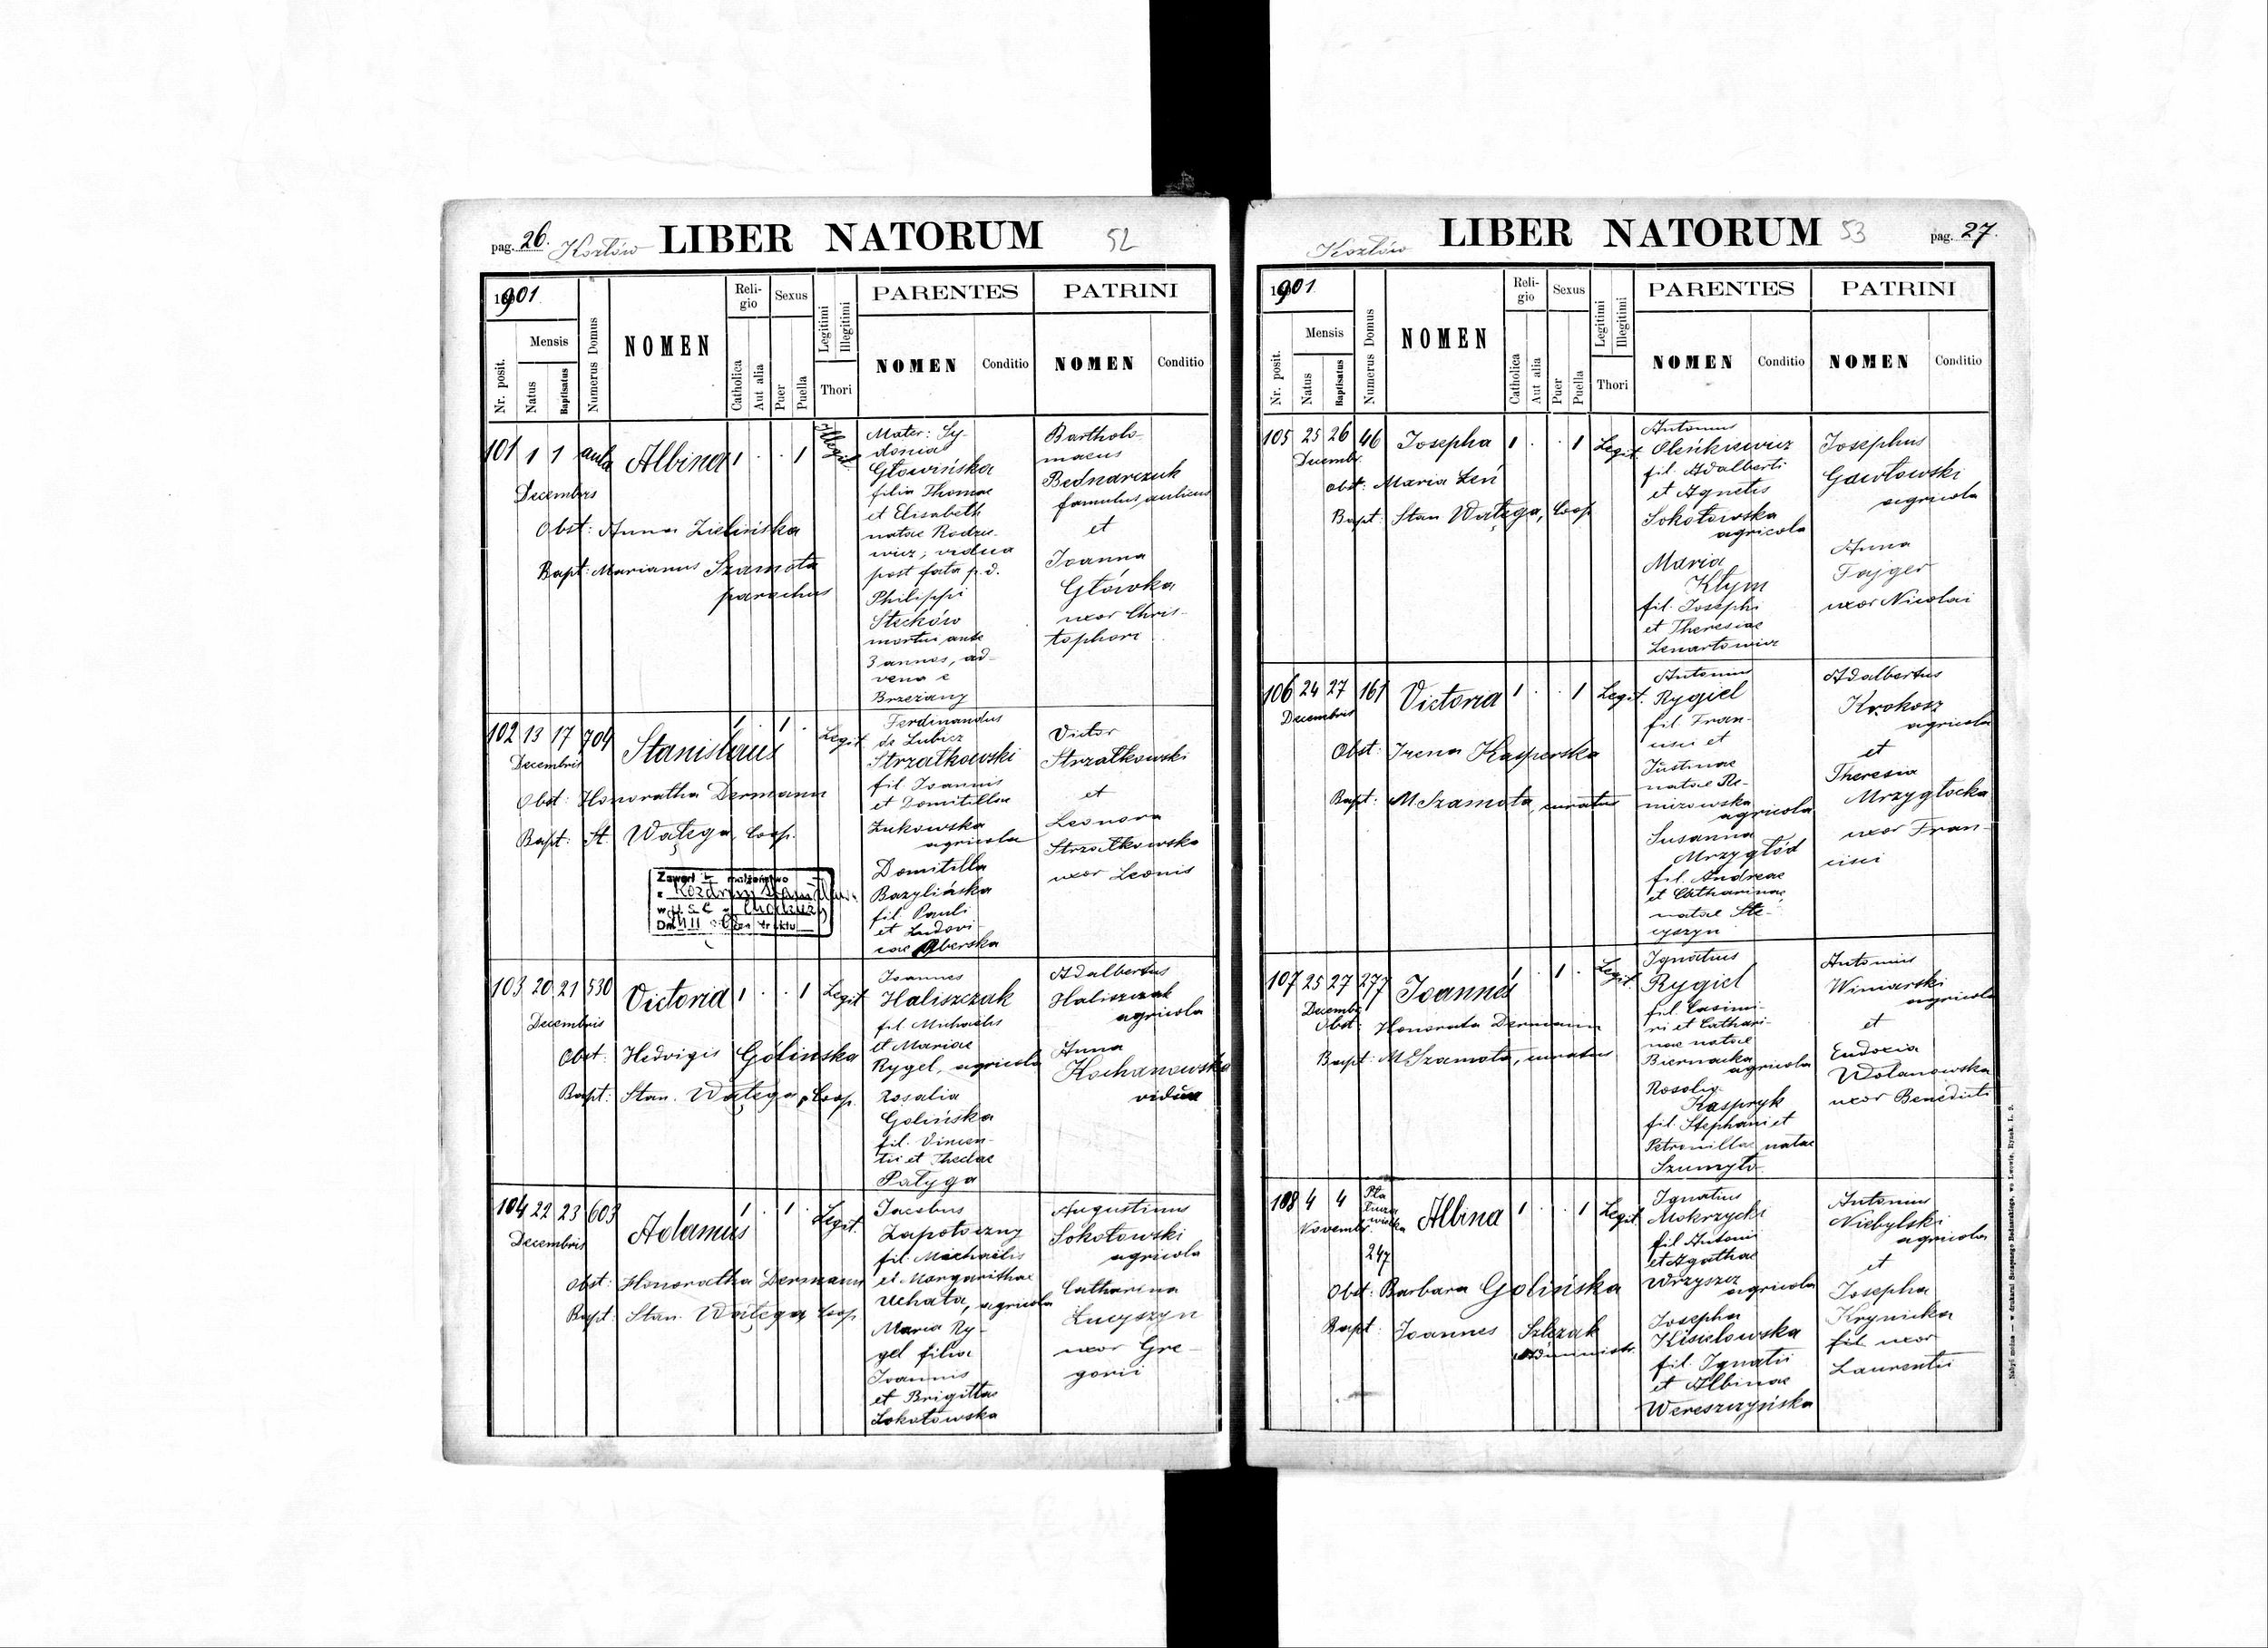 pag. 26. Kozłów LIBER NATORUM 52
1901
Nr. posit.
Mensis
Natus
Baptisatus
Numerus Domus
NOMEN
Religio
Catholica
Aut alia
Sexus
Puer
Puella
Legitimi
Illegitimi
Thori
PARENTES
NOMEN
Conditio
PATRINI
NOMEN
Conditio
101 1 1 aula Albina 1 . . 1 Illegit.
Decembris
Obst: Anna Zielińska
Bapt: Marianus Szamota
parochus
Mater: Sy-
donia
Głowińska
filia Thomae
et Elisabeth
natae Rodzie-
wicz, vidua
post fata p. d.
Philippi
Stecków
mortui ante
3 annos, ad-
vena e
Brzeżany
Bartholo-
maeus
Bednarczuk
famulus aulicus
et
Joanna
Główka
uxor Chris-
tophori
102 13 17 704 Stanislaus 1 . 1 . Legit.
Decembris
Obst: Honoratha Dermann
Bapt: St. Wałęga, Coop.
Zawarł małżeństwo
Ferdinandus
de Lubicz
Strzałkowski
fil. Joannis
et Domitillae
Żukowska
agricola
Domitilla
Bazylińska
fil. Pauli
et Ludovi
cae Oberska
Victor
Strzałkowski
et
Leonora
Strzałkowska
uxor Leonis
103 20 21 530 Victoria 1 . . 1 Legit
Decembris
Obst: Hedvigis Golinska
Bapt: Stan. Wałęga, Coop.
Joannes
Haliszczak
fil. Michaëlis
et Mariae
Rygel, agricola
Rosalia
Golińska
fil. Vincen-
tii et Theclae
Pałyga
Adalbertus
Haliszczak
agricola
Anna
Kochanowska
vidua
104 22 23 603 Adamus 1 . 1 . Legit.
Decembris
Obst: Honoratha Dermann
Bapt: Stan. Wałęga Coop
Jacobus
Zapotoczny
fil. Michaëlis
et Margarithae
Uchata, agricola
Maria Ry-
gel filia
Joannis
et Brigittae
Sokołowska
Augustinus
Sokołowski
agricola
Catharina
Łucyszyn
uxor Gre-
gorii
Kozłów LIBER NATORUM 53 pag. 27.
1901
Nr. posit.
Mensis
Natus
Baptisatus
Numerus Domus
NOMEN
Religio
Catholica
Aut alia
Sexus
Puer
Puella
Legitimi
Illegitimi
Thori
PARENTES
NOMEN
Conditio
PATRINI
NOMEN
Conditio
105 25 26 46 Josepha 1 . . 1 Legit.
Decembr.
Obst: Maria Leń
Bapt: Stan Wałęga, Coop
Antonius
Oleńkiewicz
fil. Adalberti
et Agnetis
Sokołowska
agricola
Maria
Kłym
fil. Josephi
et Theresiae
Lenartowicz
Josephus
Gawłowski
agricola
Anna
Fajger
uxor Nicolai
106 24 27 161 Victoria 1 . . 1 Legit.
Decembris
Obst: Irena Kasperska
Bapt: M Szamota, curatus
Antonius
Rygiel
fil. Fran-
cisci et
Justinae
natae Re-
mizowska
agricola
Susanna
Mrzygłód
fil. Andreae
et Catharinae,
natae Ste-
cyszyn
Adalbertus
Krokosz
agricola
et
Theresia
Mrzygłocka
uxor Fran-
cisci
107 25 27 277 Joannes 1 . 1 . Legit.
Decembr.
Obst: Honorata Dermann
Bapt: M Szamota, curatus
Ignatius
Rygiel
fil. Casimi-
ri et Cathari-
nae natae
Biernacka
agricola
Rosalia
Kaspryk
fil. Stephani et
Petronillae natae
Szumyło
Antonius
Winiarski
agricola
et
Eudocia
Wolanowska
uxor Benedicti
108 4 4 Albina 1 . . 1 Legit.
Novembr.
247
Obst: Barbara Golińska
Bapt: Joannes Szlęzak
Administr.
Ignatius
Mokrzycki
fil Antoni
et Agathae
Wrzyszcz
agricola
Josepha
Kisielowska
fil. Ignatii
et Albinae
Wereszczyńska
Antonius
Niebylski
agricola
et
Josepha
Krynicka
fil uxor
Laurentii